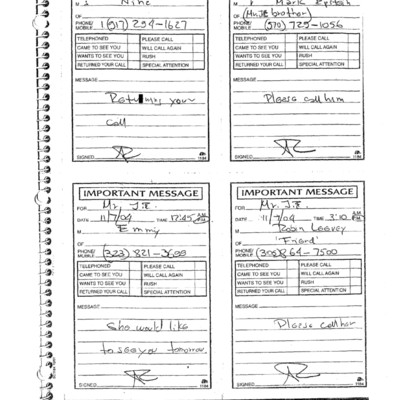 M
OF
PHONE/
MOBILE
TELEPHONED PLEASE CALL
CAME TO SEE YOU WILL CALL AGAIN
WANTS TO SEE YOU RUSH
RETURNED YOUR CALL SPECIAL ATTENTION
MESSAGE
Returning your
call
SIGNED 1184
M Mark
OF brother)
PHONE/
MOBILE
TELEPHONED PLEASE CALL
CAME TO SEE YOU WILL CALL AGAIN
WANTS TO SEE YOU RUSH
RETURNED YOUR CALL SPECIAL ATTENTION
MESSAGE
Please call him
SIGNED 1184
IMPORTANT MESSAGE
FOR Mr. J.E.
DATE 11/7/04 TIME 12:45
M Emmy
OF
PHONE/
MOBILE (323) 821-3600
TELEPHONED PLEASE CALL
CAME TO SEE YOU WILL CALL AGAIN
WANTS TO SEE YOU RUSH
RETURNED YOUR CALL SPECIAL ATTENTION
MESSAGE
She would like
to see you tomorrow.
SIGNED 1184
IMPORTANT MESSAGE
FOR Mr. J.E.
DATE 11/7/04 TIME 3:10
M Robin
OF "Friend"
PHONE/
MOBILE
TELEPHONED PLEASE CALL
CAME TO SEE YOU WILL CALL AGAIN
WANTS TO SEE YOU RUSH
RETURNED YOUR CALL SPECIAL ATTENTION
MESSAGE
Please call her
SIGNED 1184